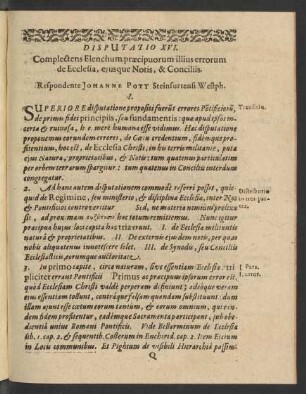 DISPUTATIO XVI.
Complectens Elenchum præcipuorum illius errorum
de Ecclesia, ejusque Notis, & Conciliis.
Respondente JOHANNE POTT Steinfurtensi Westph.
1.
SUPERIORE disputatione propositi fuerūt errores Pōtificiorū,
de primo fidei principio, seu fundamento: quæ apud ipsos in-
certa & ruinosa, h.e. merè humana esse vidimus. Hac disputatione
proponemus eorundem errores, de Causa credentium, fidemque pro-
fitentium, hoc est, de Ecclesia Christi, in hac terris militante, puta
ejus Natura, proprietatibus, & Notis: tum quatenus particulatim
per orbem terrarum spargitur: tum quatenus in Conciliis interdum
congregatur.
2. Ad hanc autem disputationem commodè referri posset, quic-
quid de Regimine, seu ministerio, & disciplina Ecclesiæ, inter Nos
& Pontificios controvertitur. Sed, ne materia nimium prolixa
sit, ad proximam hoc totum remittemus. Nunc igitur
præcipua hujus loci capita hæc tria erunt. I. de Ecclesia militantis
natura & proprietatibus. II. De externis ejusdem notis, per quas
nobis adspectantes innotescere solet. III. de Synodis, seu Conciliis
Ecclesiasticis, eorumque auctoritate.
3. In primo capite, circa naturam, sive essentiam Ecclesiæ tri-
pliciter errant Pontificii Primus ac præcipuus ipsorum error est,
quod Ecclesiam Christi valdè perperam definiunt; adeóque veram
ejus essentiam tollunt, contráque falsam quandam substituunt. dum
illam ajunt esse cœtum eorum tantùm, & eorum omnium, qui ean-
dem fidem profitentur, eadémque Sacramenta participant, sub obe-
dientia unius Romani Pontificis. Vide Bellarminum de Ecclesia
lib. 1. cap. 2. & sequentib. Costerum in Enchirid. cap. 2. Item Eccium
in Locis communibus. Et Pighium de visibili Hierarchia passim.
Q
Transitio.
Distributio
I Pars.
I. error.